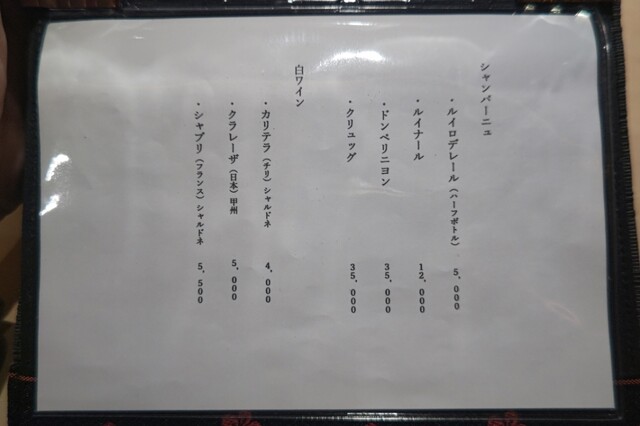 シャンパーニュ
・ルイロデレール（ハーフボトル） 5,000
・ルイナール 12,000
・ドンペリニヨン 35,000
・クリュッグ 35,000
白ワイン
・カリテラ（チリ）シャルドネ 4,000
・クラレーザ（日本）甲州 5,000
・シャブリ（フランス）シャルドネ 5,500